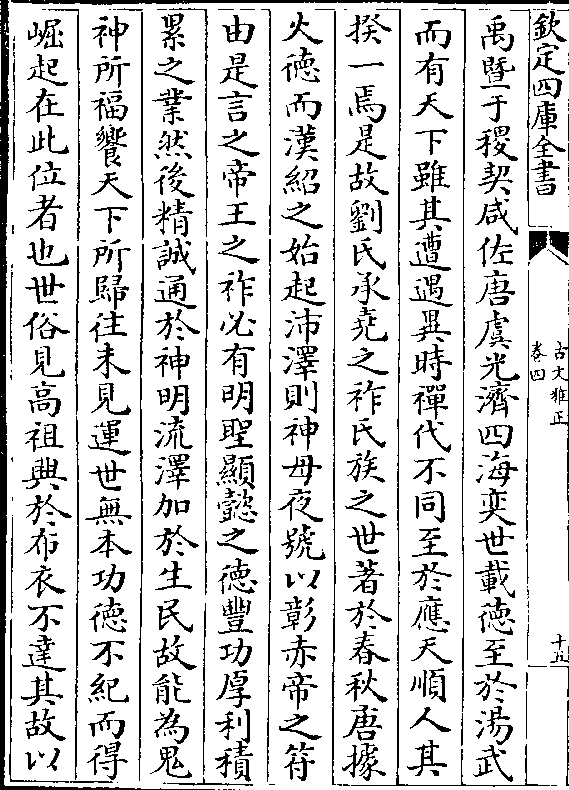 欽定四庫全書
古文雅正
卷四
十五
禹暨于稷契咸佐唐虞光濟四海奕世載徳至於湯武
而有天下雖其遭遇異時禪代不同至於應天順人其
揆一焉是故劉氏承堯之祚氏族之世著於春秋唐據
火徳而漢紹之始起沛澤則神母夜號以彰赤帝之符
由是言之帝王之祚必有明聖顯懿之徳豐功厚利積
累之業然後精誠通於神明流澤加於生民故能為鬼
神所福饗天下所歸往未見運世無本功徳不紀而得
崛起在此位者也世俗見髙祖興於布衣不達其故以